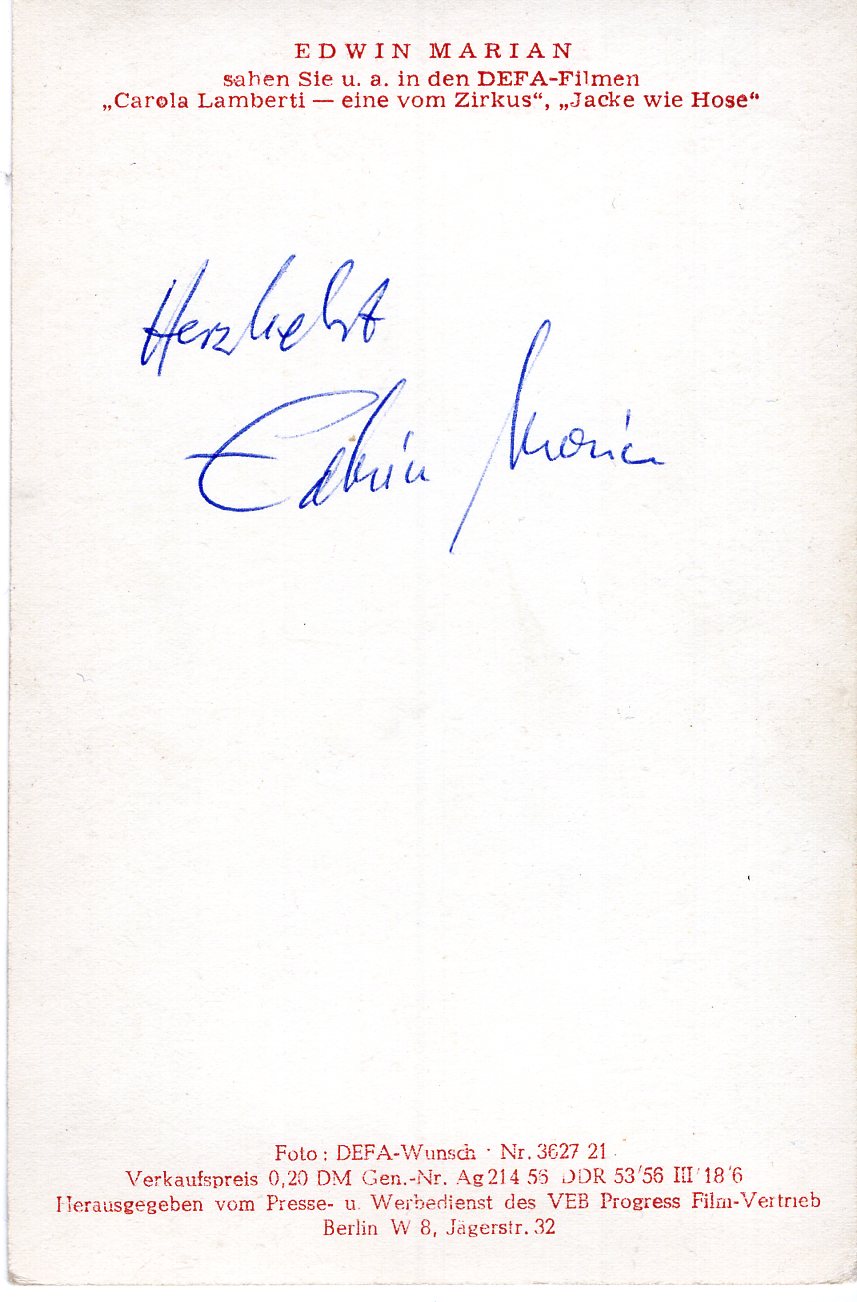 EDWIN MARIAN
sahen Sie u. a. in den DEFA-Filmen
„Carola Lamberti — eine vom Zirkus“, „Jacke wie Hose“
Herzlichst
Edwin Marian
Foto: DEFA-Wunsch · Nr. 3627 21
Verkaufspreis 0,20 DM Gen.-Nr. Ag 214 56 DDR 53/56 III/18/6
Herausgegeben vom Presse- u. Werbedienst des VEB Progress Film-Vertrieb
Berlin W 8, Jägerstr. 32